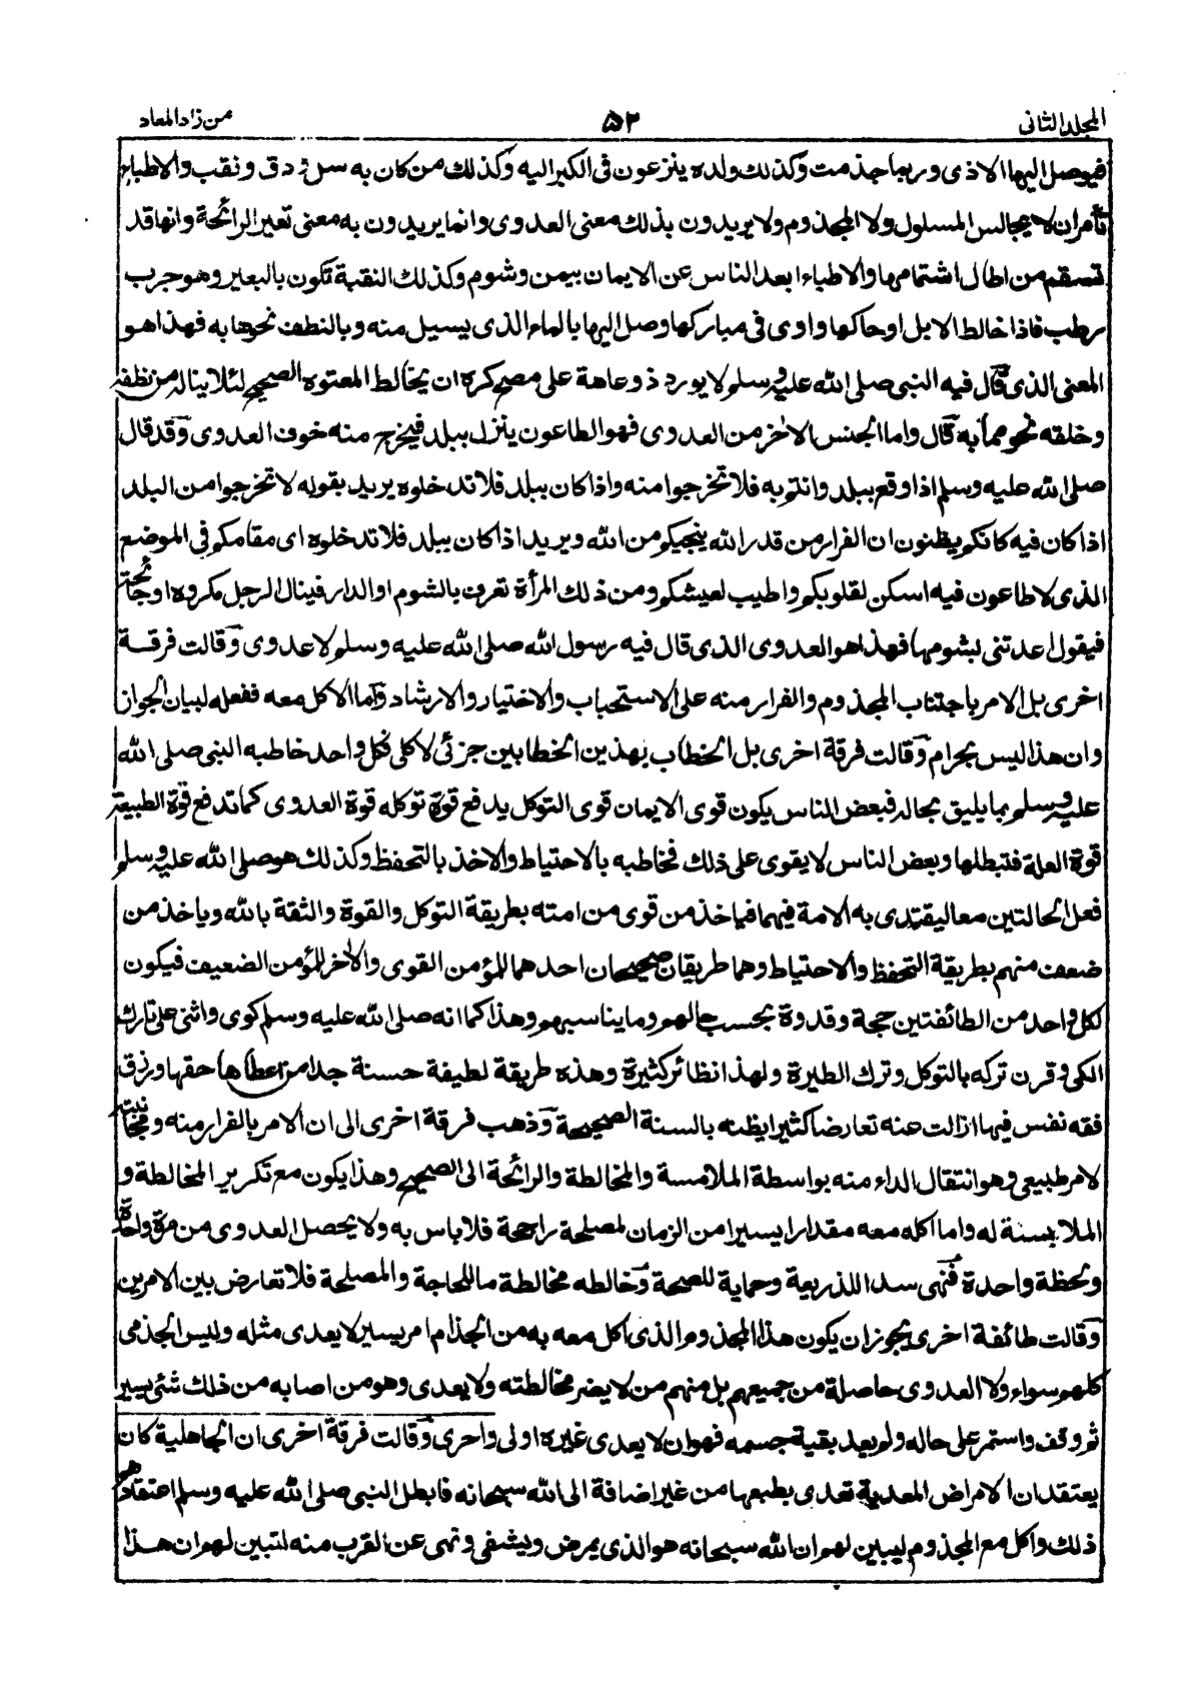 المجلد الثانى
٥٢
من زاد المعاد
فيوصل اليها الاذى وربما جذمت وكذلك ولده ينزعون فى الكبر اليه وكذلك من كان به سل ودق ونقب والاطباء
تأمر ان لا يجالس المسلول ولا المجذوم ولا يريدون بذلك معنى العدوى وانما يريدون به معنى تغير الرائحة وانها قد
تسقم من اطال اشتمامها والاطباء ابعد الناس عن الايمان بيمن وشوم وكذلك النقبة تكون بالبعير وهو جرب
رطب فاذا خالط الابل او حاكها واوى فى مباركها وصل اليها بالماء الذى يسيل منه وبالنطف نحوها به فهذا هو
المعنى الذى قال فيه النبى صلى الله عليه وسلم لا يورد ذو عاهة على مصح كره ان يخالط المعتوه الصحيح لئلا يناله من نطفه
وخلقه نحو مما به قال واما الجنس الاخر من العدوى فهو الطاعون ينزل ببلد فيخرج منه خوف العدوى وقد قال
صلى الله عليه وسلم اذا وقع ببلد وانتم به فلا تخرجوا منه واذا كان ببلد فلا تدخلوه يريد بقوله لا تخرجوا من البلد
اذا كان فيه كانكم يظنون ان الفرار من قدر الله ينجيكم من الله ويريد اذا كان ببلد فلا تدخلوه اى مقامكم فى الموضع
الذى لا طاعون فيه اسكن لقلوبكم واطيب لعيشكم ومن ذلك المرأة تعرف بالشوم او الدار فينال الرجل مكروه او جائحة
فيقول اعدتنى بشومها فهذا هو العدوى الذى قال فيه رسول الله صلى الله عليه وسلم لا عدوى وقالت فرقة
اخرى بل الامر باجتناب المجذوم والفرار منه على الاستحباب والاختيار والارشاد واما الاكل معه ففعله لبيان الجواز
وان هذا ليس بحرام وقالت فرقة اخرى بل الخطاب بهذين الخطابين جزئى لا كلى فكل واحد خاطبه النبى صلى الله
عليه وسلم بما يليق بحاله فبعض الناس يكون قوى الايمان قوى التوكل يدفع قوة توكله قوة العدوى كما تدفع قوة الطبيعة
قوة العلة فتبطلها وبعض الناس لا يقوى على ذلك فخاطبه بالاحتياط والاخذ بالتحفظ وكذلك هو صلى الله عليه وسلم
فعل الحالتين معا ليقتدى به الامة فيهما فياخذ من قوى من امته بطريقة التوكل والقوة والثقة بالله وياخذ من
ضعف منهم بطريقة التحفظ والاحتياط وهما طريقان صحيحان احدهما للمؤمن القوى والاخر للمؤمن الضعيف فيكون
لكل واحد من الطائفتين حجة وقدوة بحسب حالهم وما يناسبهم وهذا كما انه صلى الله عليه وسلم كوى واثنى على تارك
الكى وقرن تركه بالتوكل وترك الطيرة ولهذا نظائر كثيرة وهذه طريقة لطيفة حسنة جدا من اعطاها حقها ورزق
فقه نفس فيها ازالت عنه تعارضا كثيرا يظنه بالسنة الصحيحة وذهب فرقة اخرى الى ان الامر بالفرار منه ومجانبته
لامر طبيعى وهو انتقال الداء منه بواسطة الملامسة والمخالطة والرائحة الى الصحيح وهذا يكون مع تكرير المخالطة و
الملابسة له واما اكله معه مقدارا يسيرا من الزمان لمصلحة راجحة فلا باس به ولا يحصل العدوى من مرة واحدة
ولحظة واحدة فنهى سدا للذريعة وحماية للصحة وخالطه مخالطة ما للحاجة والمصلحة فلا تعارض بين الامرين
وقالت طائفة اخرى يجوز ان يكون هذا المجذوم الذى اكل معه به من الجذام امر يسير لا يعدى مثله وليس الجذمى
كلهم سواء ولا العدوى حاصلة من جميعهم بل منهم من لا يضر مخالطته ولا يعدى وهو من اصابه من ذلك شئ يسير
ثم وقف واستمر على حاله ولم يعد بقية جسمه فهو ان لا يعدى غيره اولى واحرى وقالت فرقة اخرى ان الجاهلية كان
يعتقد ان الامراض المعدية تعدى بطبعها من غير اضافة الى الله سبحانه فابطل النبى صلى الله عليه وسلم اعتقادهم
ذلك واكل مع المجذوم ليبين لهم ان الله سبحانه هو الذى يمرض ويشفى ونهى عن القرب منه لتبين لهم ان هذا